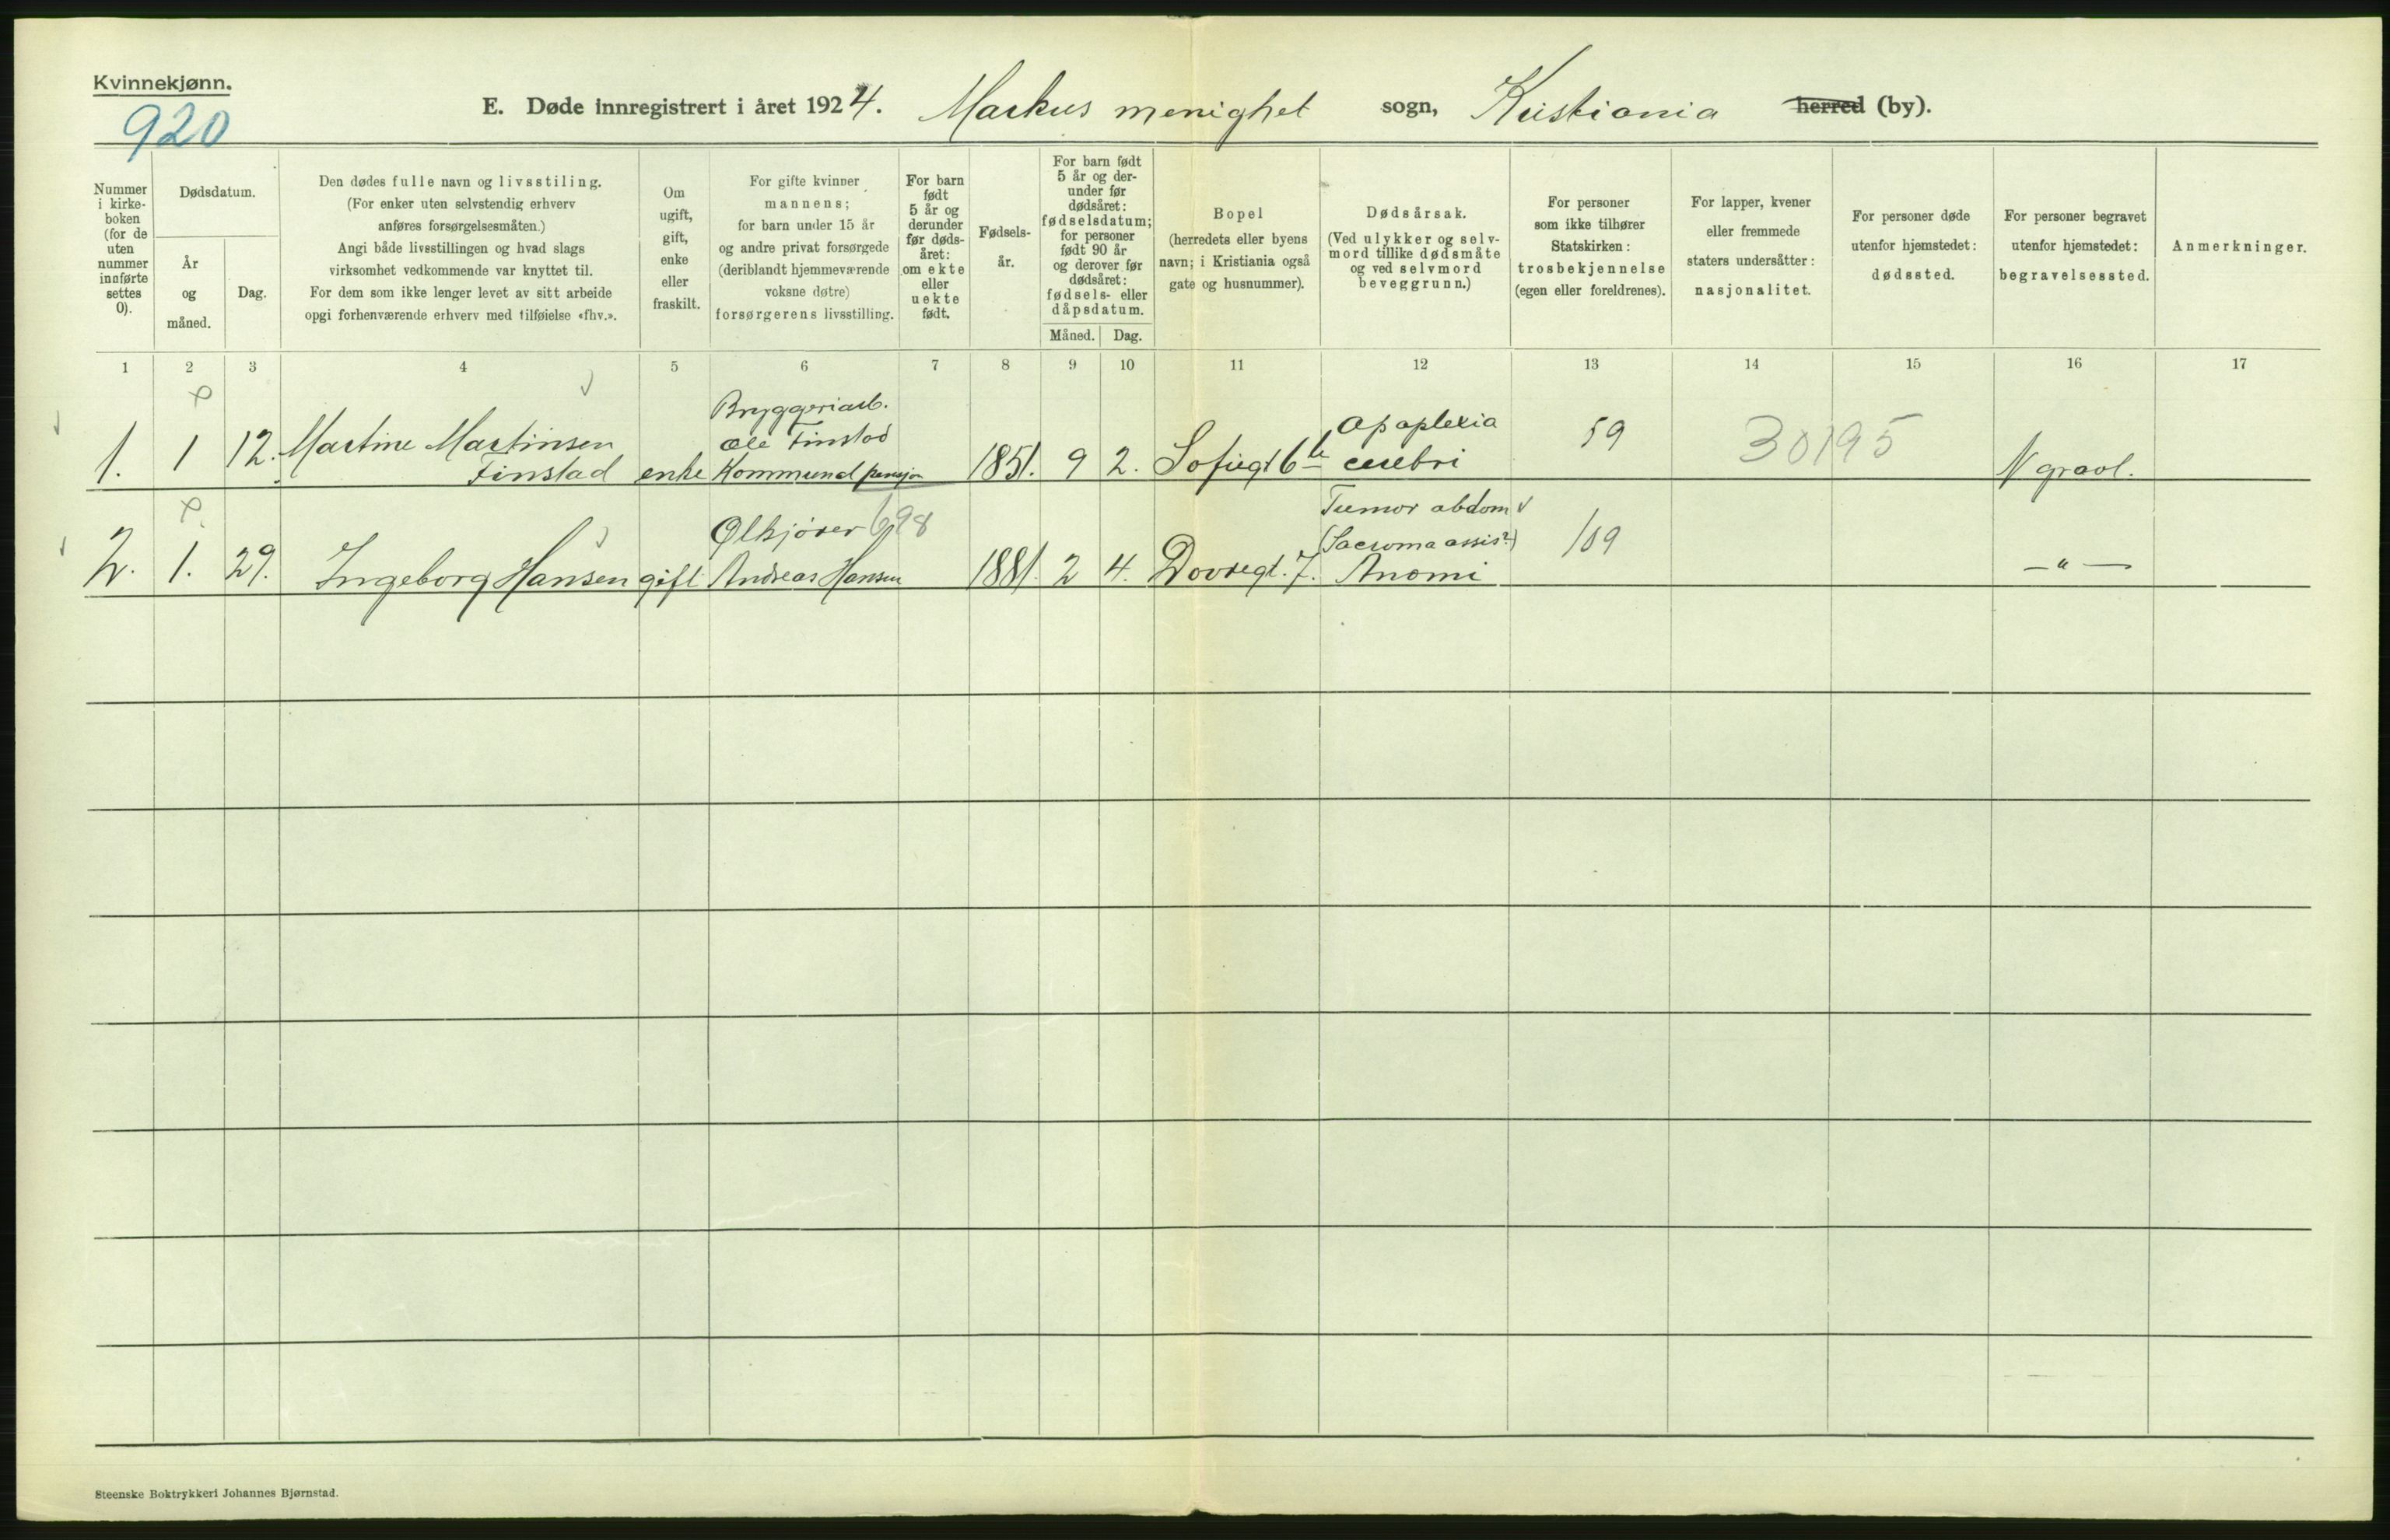 Kvinnekjønn.
920
E. Døde innregistrert i året 1924. Markus menighet sogn, Kristiania herred (by).
Nummer
i kirke-
boken
(for de
uten
nummer
innførte
settes
0).
Dødsdatum.
År
og
måned.
Dag.
Den dødes fulle navn og livsstiling.
(For enker uten selvstendig erhverv
anføres forsørgelsesmåten.)
Angi både livsstillingen og hvad slags
virksomhet vedkommende var knyttet til.
For dem som ikke lenger levet av sitt arbeide
opgi forhenværende erhverv med tilføielse «fhv.».
Om
ugift,
gift,
enke
eller
fraskilt.
For gifte kvinner
mannens;
for barn under 15 år
og andre privat forsørgede
(deriblandt hjemmeværende
voksne døtre)
forsørgerens livsstilling.
For barn
født
5 år og
derunder
før døds-
året:
om ekte
eller
uekte
født.
Fødsels-
år.
For barn født
5 år og der-
under før
dødsåret:
fødselsdatum;
for personer
født 90 år
og derover før
dødsåret:
fødsels- eller
dåpsdatum.
Måned. Dag.
Bopel
(herredets eller byens
navn; i Kristiania også
gate og husnummer).
Dødsårsak.
(Ved ulykker og selv-
mord tillike dødsmåte
og ved selvmord
beveggrunn.)
For personer
som ikke tilhører
Statskirken:
trosbekjennelse
(egen eller foreldrenes).
For lapper, kvener
eller fremmede
staters undersåtter:
nasjonalitet.
For personer døde
utenfor hjemstedet:
dødssted.
For personer begravet
utenfor hjemstedet:
begravelsessted.
Anmerkninger.
1 2 3 4 5 6 7 8 9 10 11 12 13 14 15 16 17
Bryggeriarb.
Apoplexia
1. 1 12. Martine Martinsen Ole Finstad 59 30195
Finstad enke Kommunal pensjon 1851. 9 2. Sofiegt 6 cerebri N gravl.
Tumor abdom
Ølkjører 698 (Sarcoma 109
2. 1. 29. Ingeborg Hansen gift Andreas Hansen 1881. 2 4. Dovregt. 7. Anomi —"—
Steenske Boktrykkeri Johannes Bjørnstad.